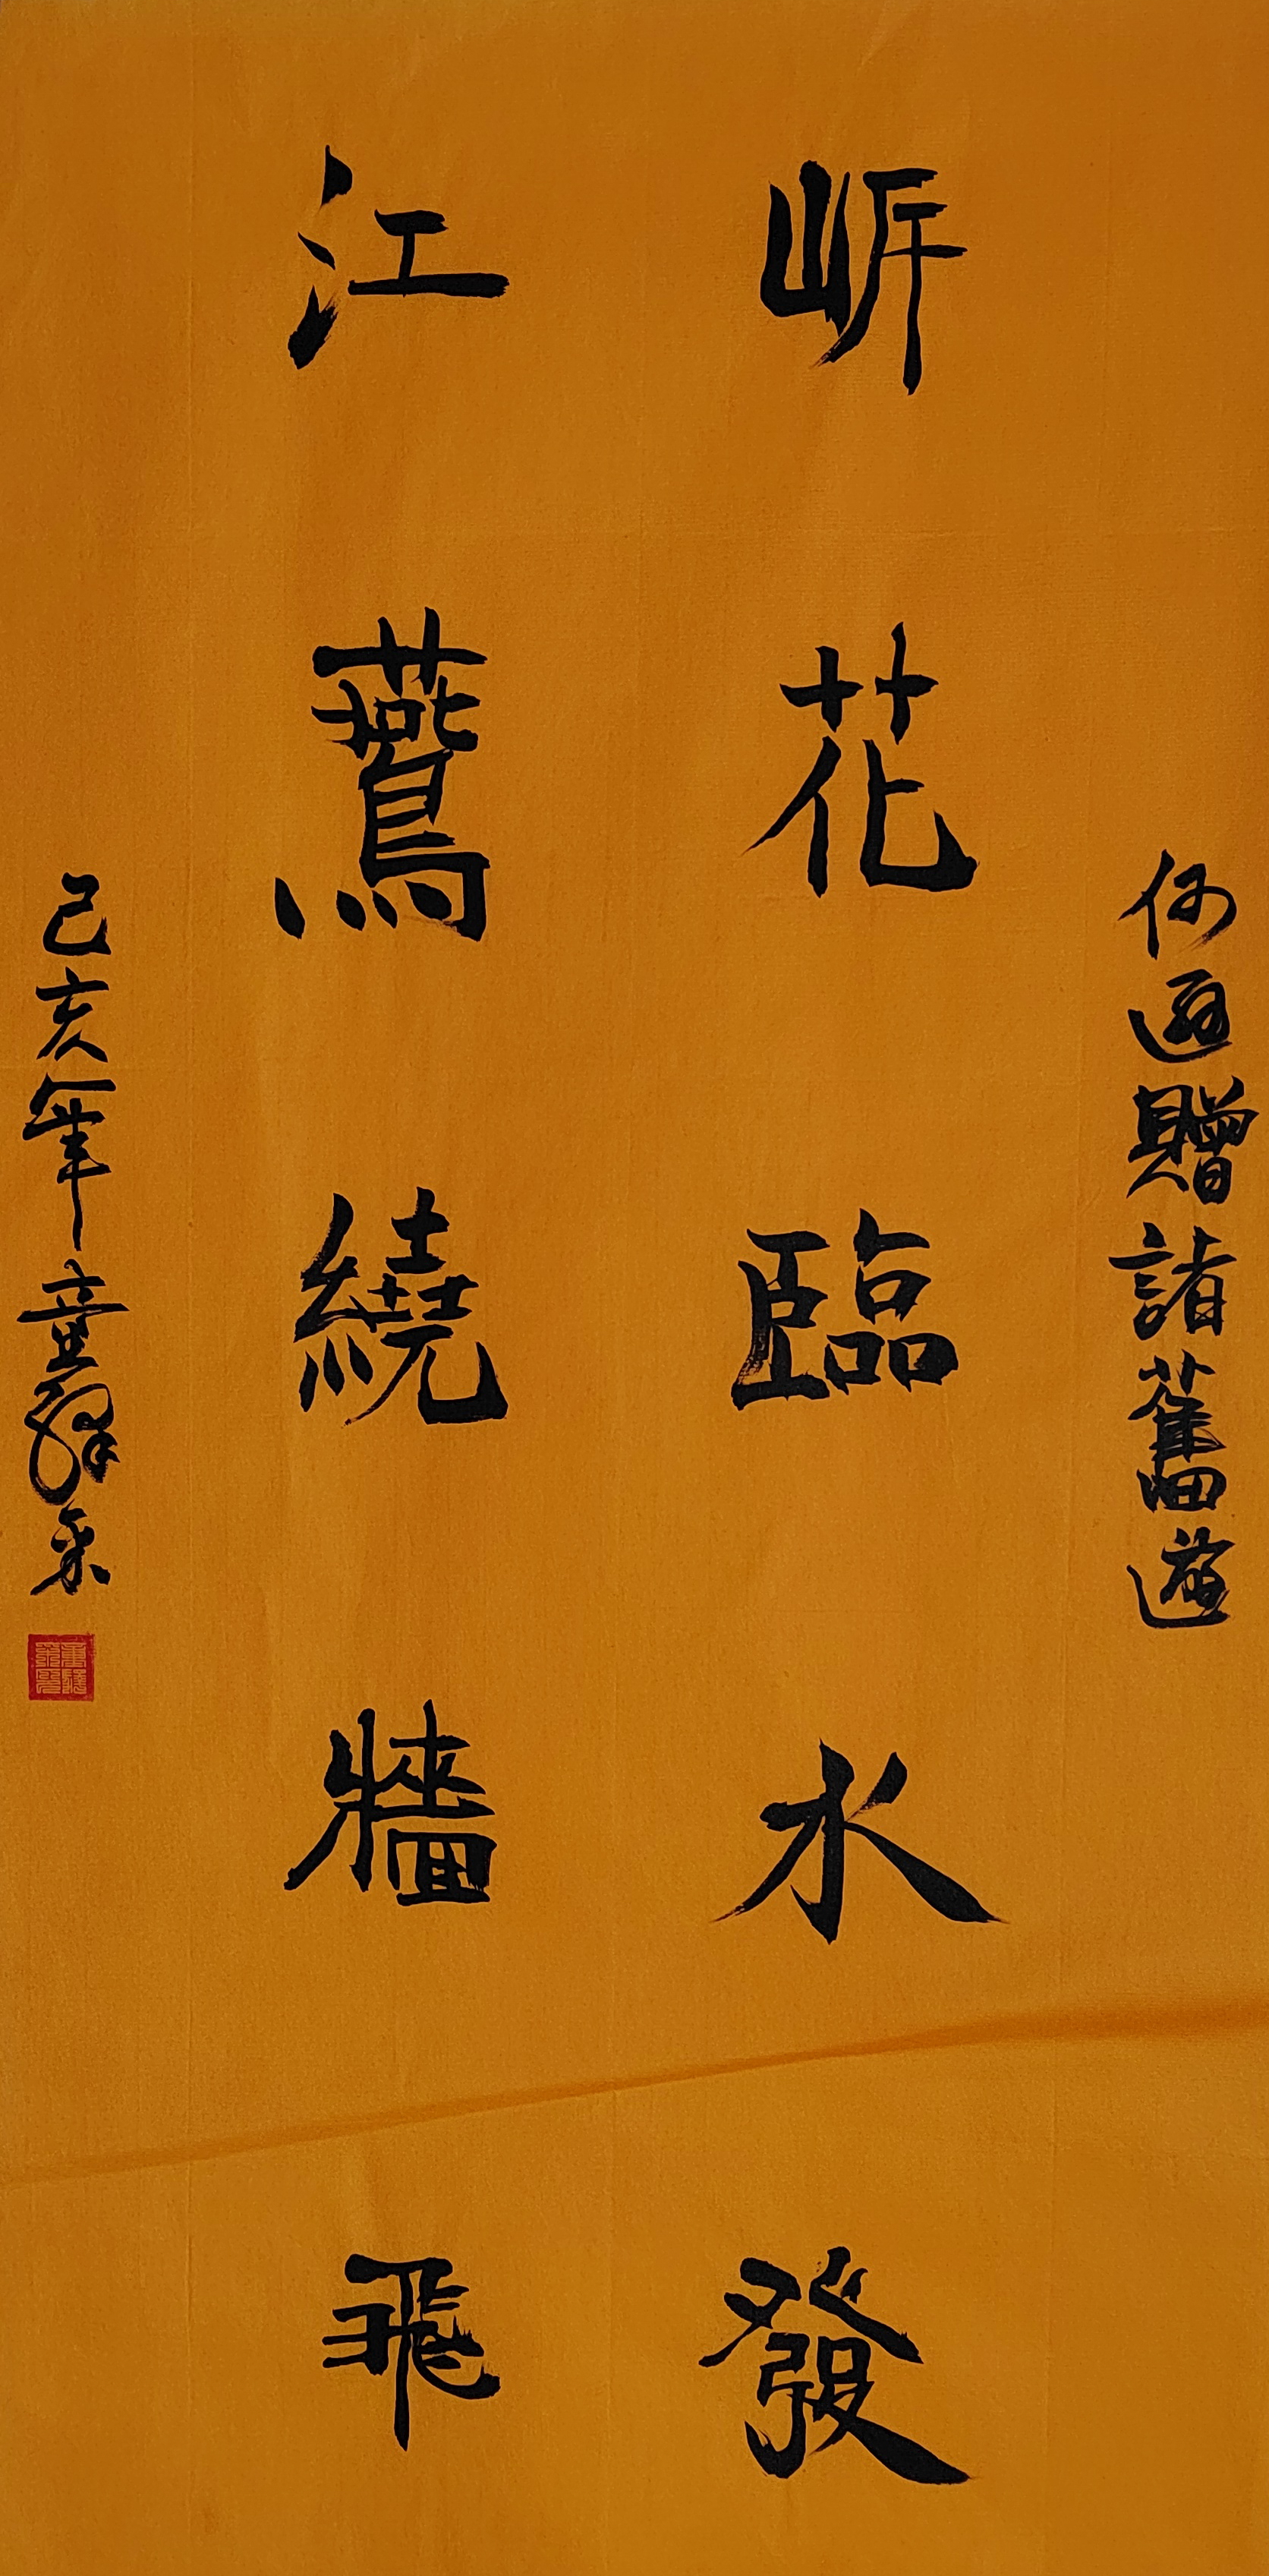 何遜贈諸舊遊
㟁花臨水發
江鷰繞牆飛
己亥年童